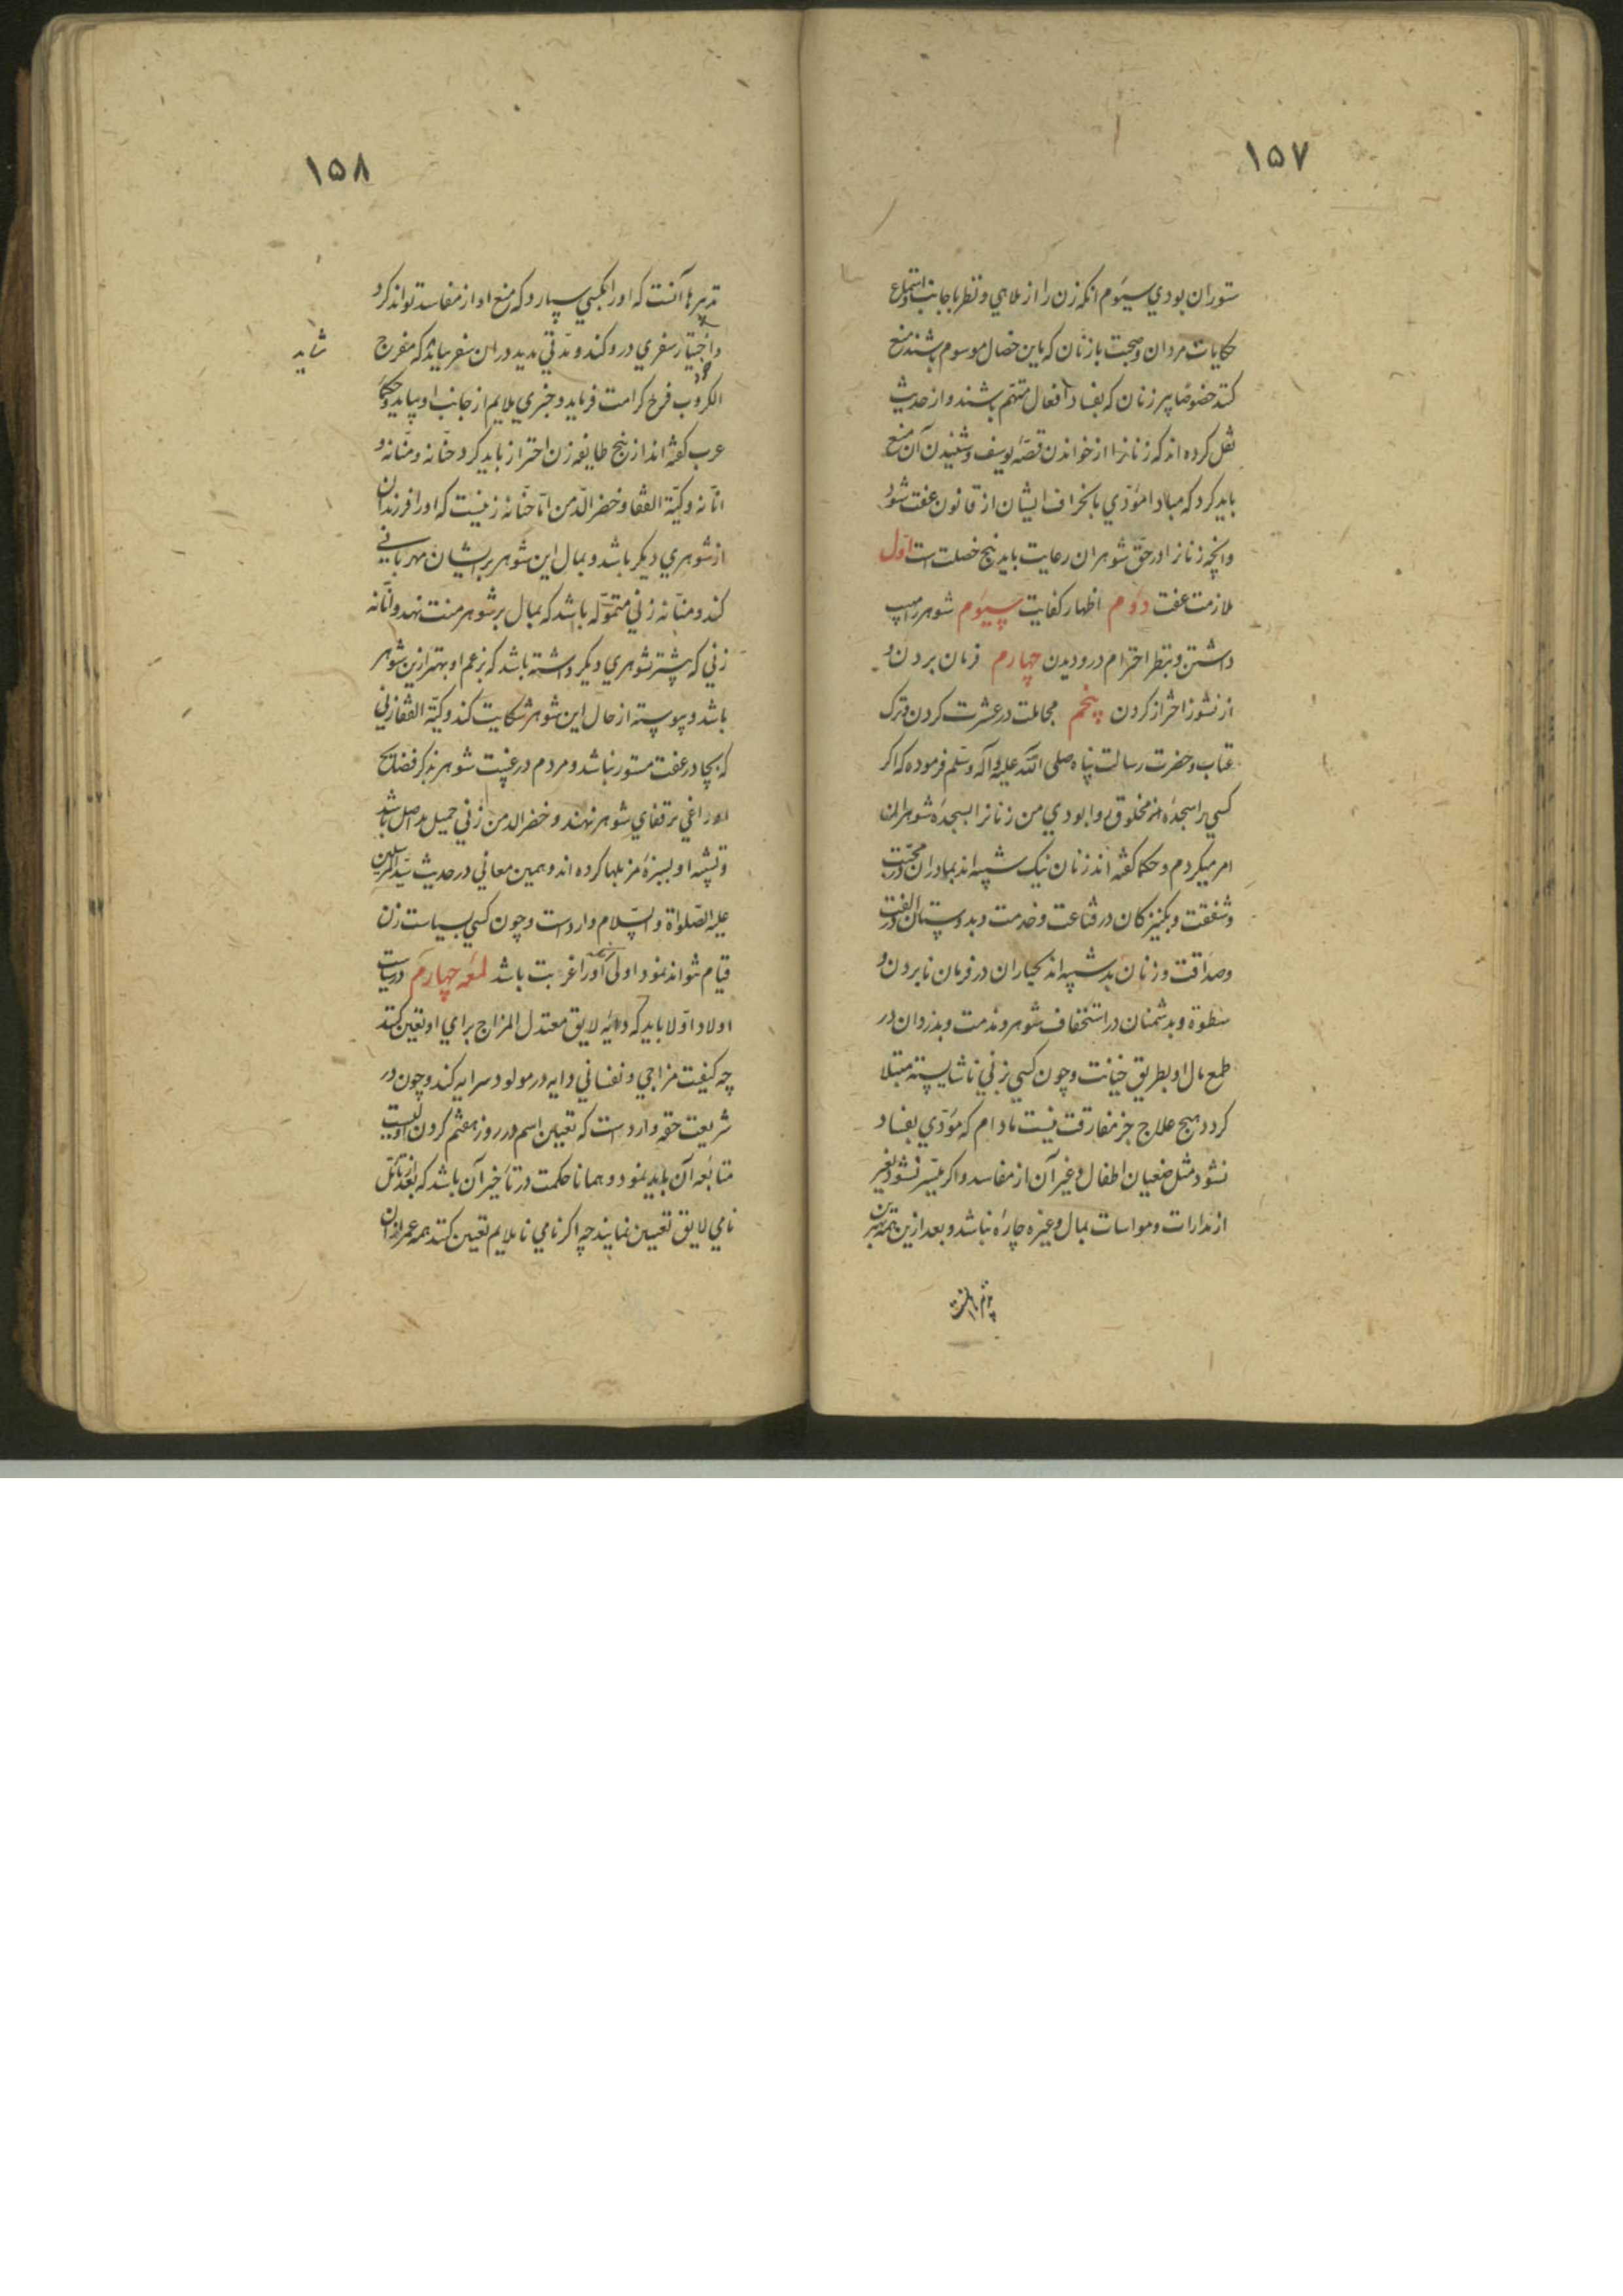 ١٥٧
ستوران بودي سيوم انكه زن را از ملاهي و نظر باجانب و استماع
حكايات مردان و صحبت با زنان كه باين خصال موسوم باشند منع
كند خصوصا پير زنان كه بفساد افعال متهم باشند و از حديث
نقل كرده اند كه زنانرا از خواندن قصه يوسف و شنيدن آن منع
بايد كرد كه مبادا مؤدي بانحراف ايشان از قانون عفت شود
و انچه زنانرا در حق شوهران رعايت بايد پنج خصلت است اول
ملازمت عفت دوم اظهار كفايت سيوم شوهر را مهيب
داشتن و بنظر احترام درو ديدن چهارم فرمان بردن و
از نشوز احتراز كردن پنجم مجاملت در عشرت كردن و ترك
عتاب و حضرت رسالت پناه صلى الله عليه و آله و سلم فرموده كه اكر
كسي را سجدهٔ مخلوق روا بودي من زنانرا بسجدهٔ شوهران
امر ميكردم و حكما كفته اند زنان نيك شبيه اند بمادران در محبت
و شفقت و بكنيزكان در قناعت و خدمت و بدوستان در الفت
و صداقت و زنان بد شبيه اند بجباران در فرمان نابردن و
سطوة و بدشمنان در استخفاف شوهر و مذمت و بدزدان در
طمع مال او بطريق خيانت و چون كسي بزني ناشايسته مبتلا
كردد هيچ علاج جز مفارقت نيست مادام كه مؤدي بفساد
نشود مثل ضعيان اطفال و غير آن از مفاسد و اكر ميسر نشود بغير
از مدارات و مواسات بمال و غيره چاره نباشد و بعد ازين همه بهترين
١٥٨
تدبيرها آنست كه او را بكسي سپارد كه منع او از مفاسد تواند كرد
و خود اختيار سفري دور كند و مدتي مديد در ان سفر بماند كه مفرج
شايد
الكروب فرح كرامت فرمايد و خبري ملايم از جانب او بيايد و حكما
عرب كفته اند از پنج طايفه زن احتراز بايد كرد حنانه و منانه و
انانه و كية القفا و خضراء الدمن اما حنانه زنيست كه او را فرزندان
از شوهري ديكر باشد و بمال اين شوهر بر ايشان مهرباني
كند و منانه زني متموله باشد كه بمال بر شوهر منت نهد و انانه
زني كه پيشتر شوهري ديكر داشته باشد كه بزعم او بهتر ازين شوهر
باشد و پيوسته از حال اين شوهر شكايت كند و كية القفا زني
كه بجادر عفت مستور نباشد و مردم در غيبت شوهر بذكر فضايح
او داغي بر قفاي شوهر نهند و خضراء الدمن زني جميل بد اصل باشد
و تشبيه او بسبزهٔ مزبلها كرده اند و همين معاني در حديث سيد المرسلين
عليه الصلواة و السلام وارد است و چون كسي بسياست زن
قيام نتواند نمود اولى آنكه او را عزبت باشد لمعه چهارم در سياست
اولاد اولا بايد كه دايهٔ لايق معتدل المزاج براي او تعيين كنند
چه كيفيت مزاجي و نفساني دايه در مولود سرايه كند و چون در
شريعت حقه وارد است كه تعيين اسم در روز هفتم كردن اوليست
متابعه آن بايد نمود و همانا حكمت در تأخير آن باشد كه بعد از تأمل
نامي لايق تعيين نمايند چه اكر نامي ناملايم تعيين كنند همه عمر از ان